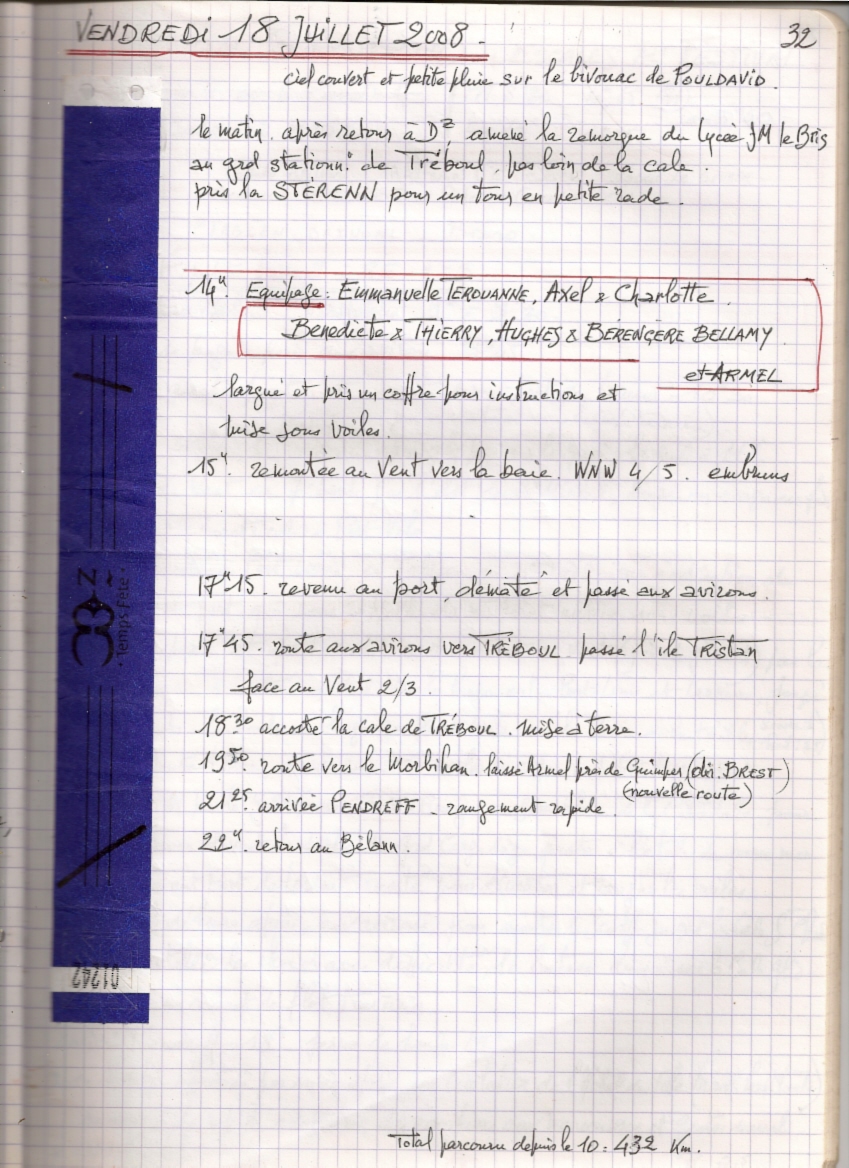 VENDREDI 18 JUILLET 2008.
32
ciel couvert et petite pluie sur le bivouac de POULDAVID.
le matin. après retour à Dz, amené la remorque du Lycée JM le Bris
au grd stationnt de Tréboul, pas loin de la cale.
pris la STERENN pour un tour en petite rade.
14h. Equipage: Emmanuelle TEROUANNE, Axel & Charlotte.
Benedicte & THIERRY, HUGHES & BÉRENGÈRE BELLAMY
et ARMEL
largué et pris un coffre pour instructions et
mise sous voiles.
15h. remontée au Vent vers la baie. WNW 4/5. embruns
17h15. revenu au port, démâté et passé aux avirons.
17h45. route aux avirons vers TRÉBOUL. passé l'île TRistan
face au Vent 2/3.
18 30 accosté la cale de TRÉBOUL. mise à terre.
19 50 route vers le Morbihan. laissé Armel près de Quimper (dir. BREST)
(nouvelle route)
21 25 arrivée PENDREFF. rangement rapide.
22h. retour au Bélann.
Temps Fête
01242
Total parcouru depuis le 10: 432 Km.